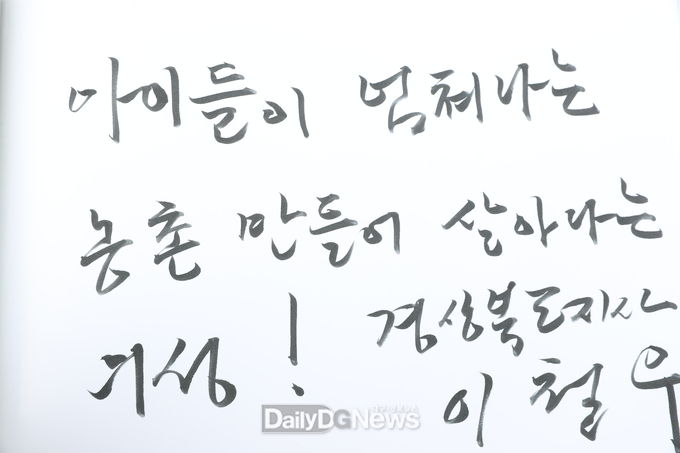 아이들이 넘쳐나는
농촌 만들어 살아나는
의성 !
경상북도지사
이 철 우
DailyDGNews